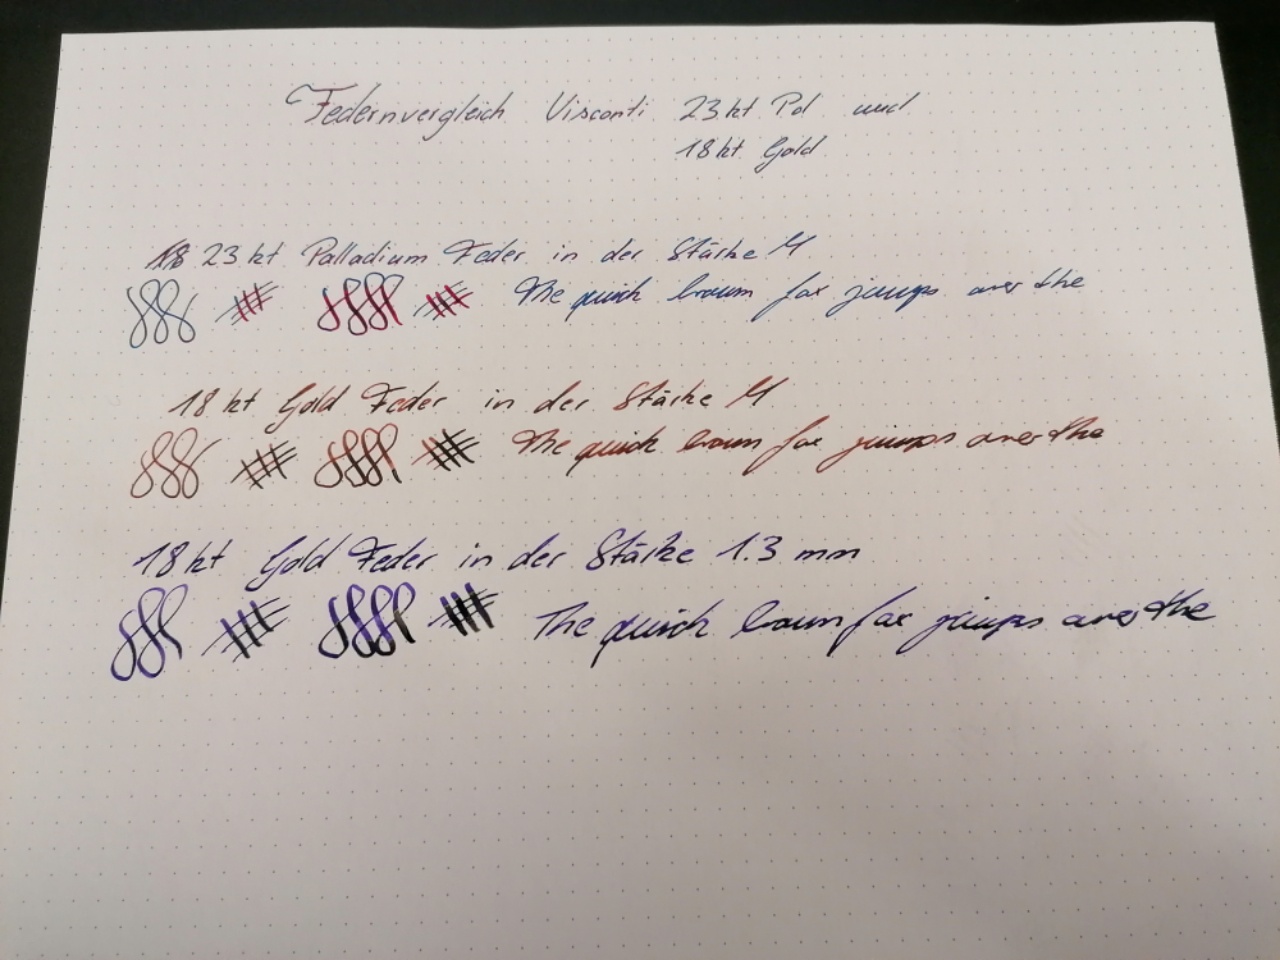 Federnvergleich Visconti 23kt Pd und
18kt Gold
23 kt Palladium Feder in der Stärke M
The quick brown fox jumps over the
18 kt Gold Feder in der Stärke M
The quick brown fox jumps over the
18 kt Gold Feder in der Stärke 1.3 mm
The quick brown fox jumps over the